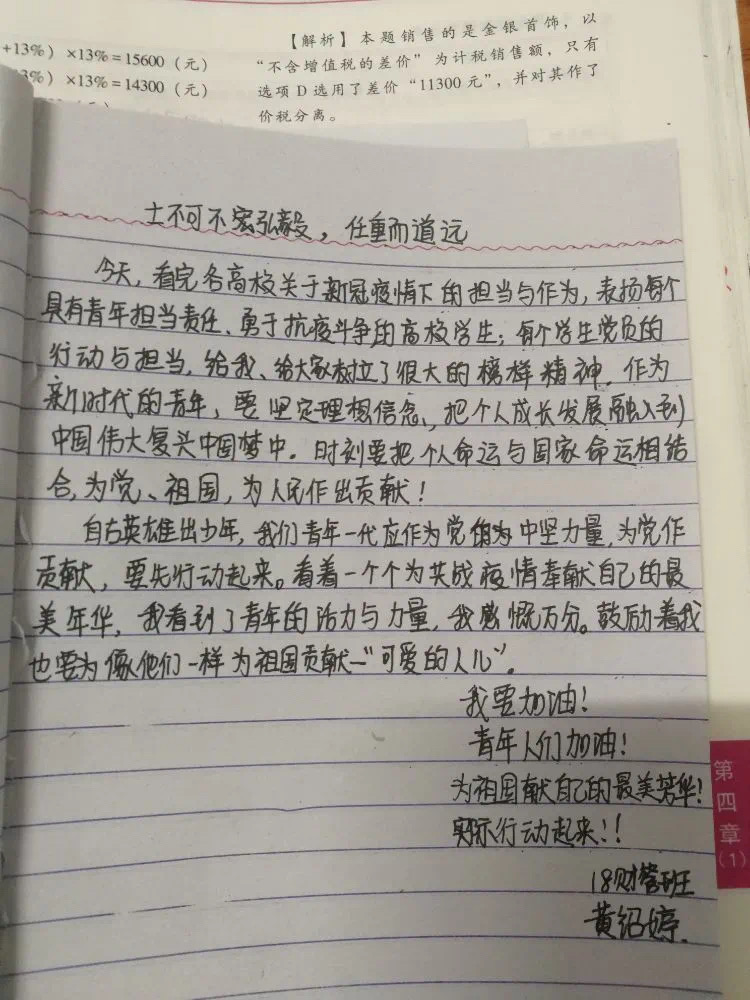 +13%）×13%＝15600（元）
3%）×13%＝14300（元）
【解析】本题销售的是金银首饰，以
“不含增值税的差价”为计税销售额，只有
选项 D 选用了差价“11300 元”，并对其作了
价税分离。
士不可不宏弘毅，任重而道远
今天，看完各高校关于新冠疫情下的担当与作为，表扬每个
具有青年担当责任、勇于抗疫斗争的高校学生；每个学生党员的
行动与担当，给我、给大家树立了很大的榜样精神。作为
新时代的青年，要坚定理想信念、把个人成长发展融入到
中国伟大复兴中国梦中。时刻要把个人命运与国家命运相结
合，为党、祖国，为人民作出贡献！
自古英雄出少年，我们青年一代应作为党中坚力量，为党作
贡献，要先行动起来。看着一个个为共战疫情奉献自己的最
美年华，我看到了青年的活力与力量，我感慨万分。鼓励着我
也要为像他们一样为祖国贡献—“可爱的人儿”。
我要加油！
青年人们加油！
为祖国献自己的最美芳华！
实际行动起来！！
18财管班
黄绍婷.
第四章(1)